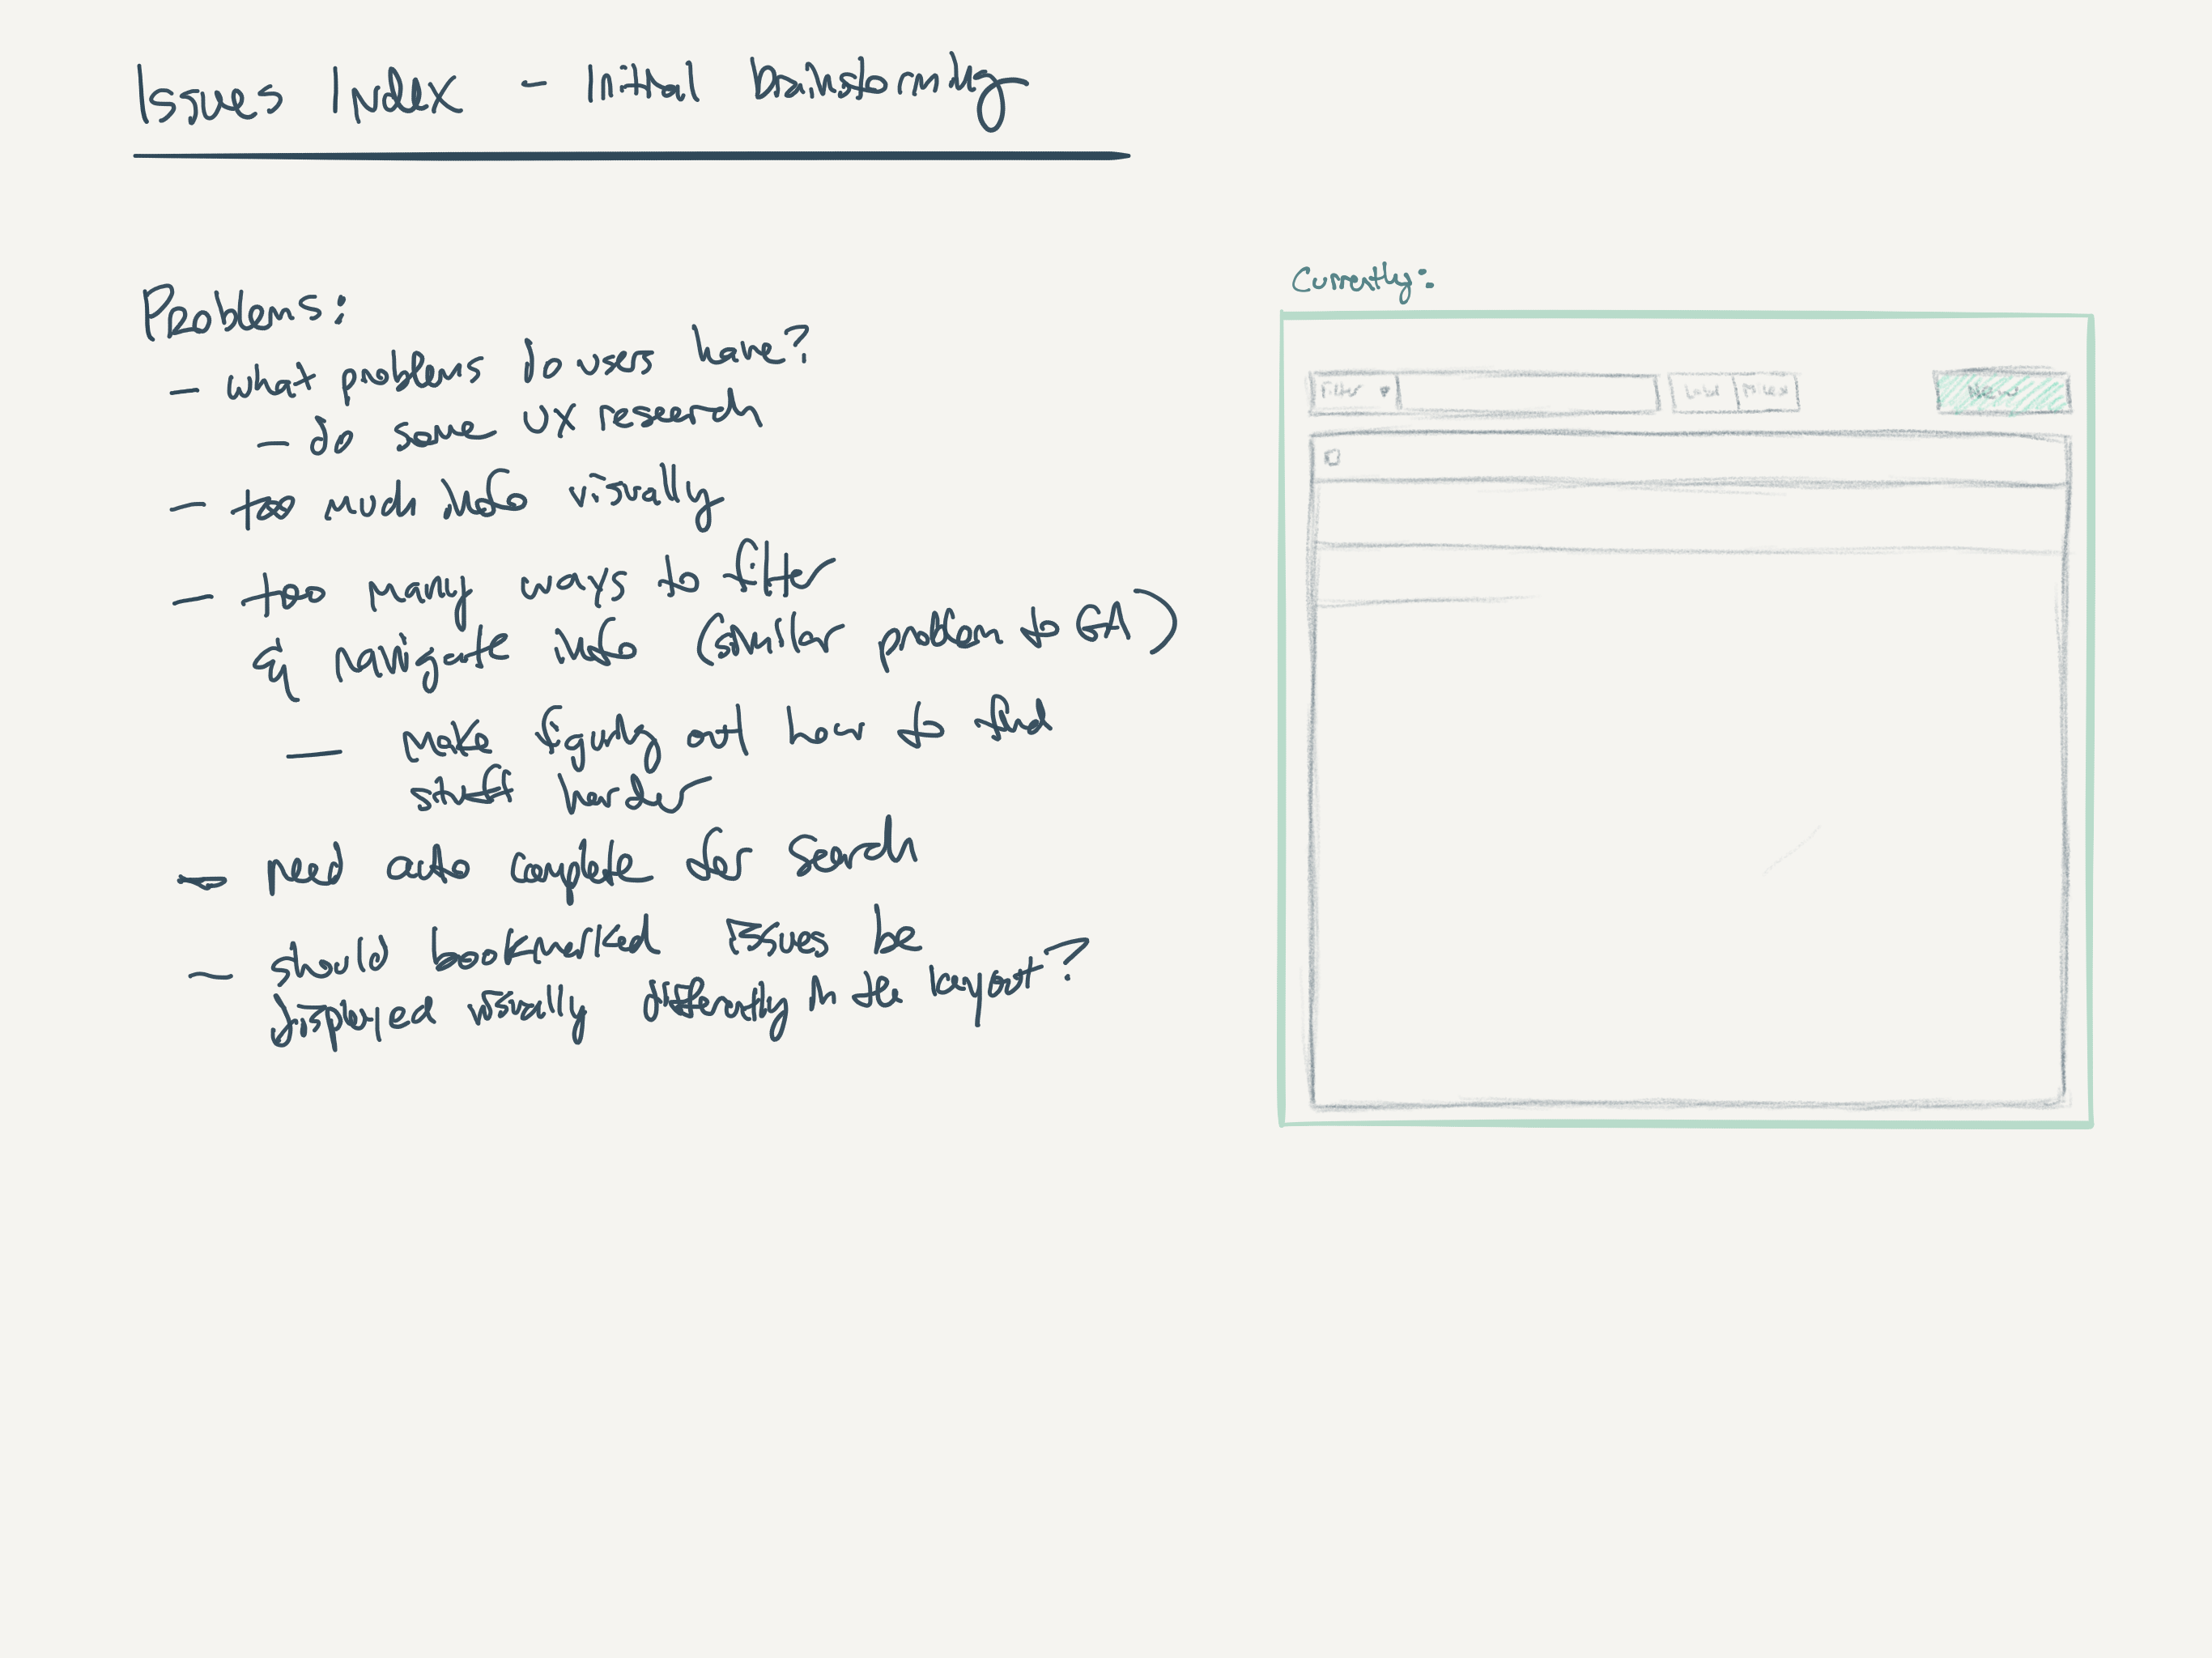 Issues Index - Initial brainstorming
Problems:
- what problems do users have?
- do some UX research
- too much info visually
- too many ways to filter
& navigate info (similar problem to GA)
- make figuring out how to find
stuff harder
- need auto complete for search
- should bookmarked issues be
displayed visually differently in the layout?
Currently:
Filter
Label
New